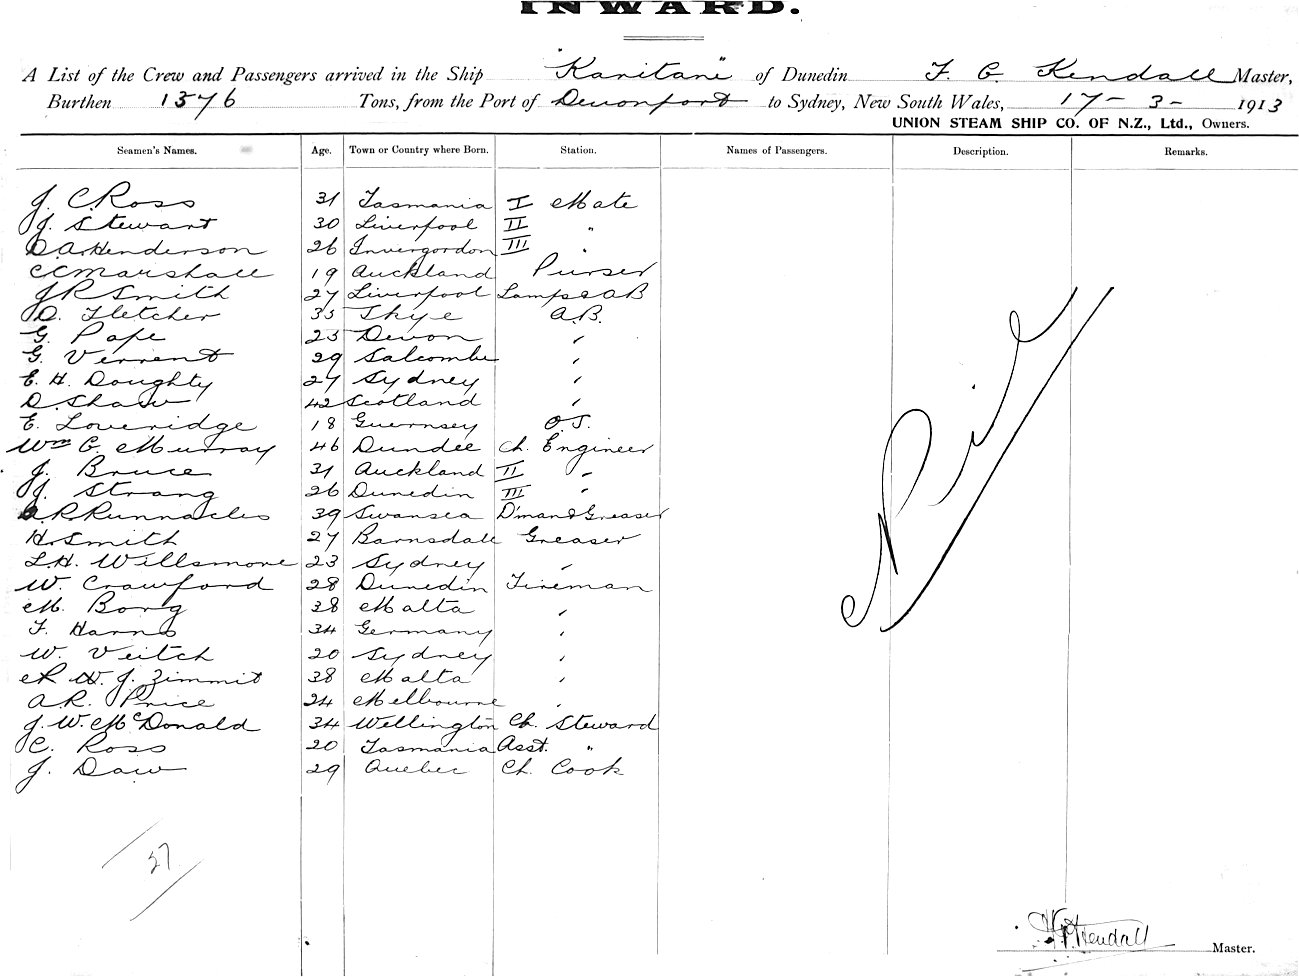 INWARD.
A List of the Crew and Passengers arrived in the Ship "Karitane" of Dunedin F. G. Kendall Master,
Burthen 1376 Tons, from the Port of Devonport to Sydney, New South Wales, 17 - 3 - 1913
UNION STEAM SHIP CO. OF N.Z., Ltd., Owners.
Seamen's Names. Age. Town or Country where Born. Station. Names of Passengers. Description. Remarks.
J. C. Ross 31 Tasmania I Mate
J. Stewart 30 Liverpool II "
D. A. Henderson 26 Invergordon III "
C C Marshall 19 Auckland Purser
J R Smith 27 Liverpool Lamps & AB
D. Fletcher 35 Skye A.B.
G. Pape 25 Devon "
G. Verrent 29 Salcombe "
E. H. Doughty 27 Sydney "
D. Shaw 42 Scotland "
E. Loveridge 18 Guernsey O.S.
Wm G. Murray 46 Dundee Ch. Engineer
J. Bruce 31 Auckland II "
J. Strang 26 Dunedin III "
A. R. Runnacles 39 Swansea D'man & Greaser
H. Smith 27 Barnsdale Greaser
L. H. Willsmore 23 Sydney "
W. Crawford 28 Dunedin Fireman
M. Borg 38 Malta "
F. Harns 34 Germany "
W. Veitch 20 Sydney "
W. J. Zimmit 38 Malta "
A. R. Price 24 Melbourne "
J. W. McDonald 34 Wellington Ch. Steward
C. Ross 20 Tasmania Asst. "
J. Daw 29 Quebec Ch. Cook
Nil
27
Kendall Master.